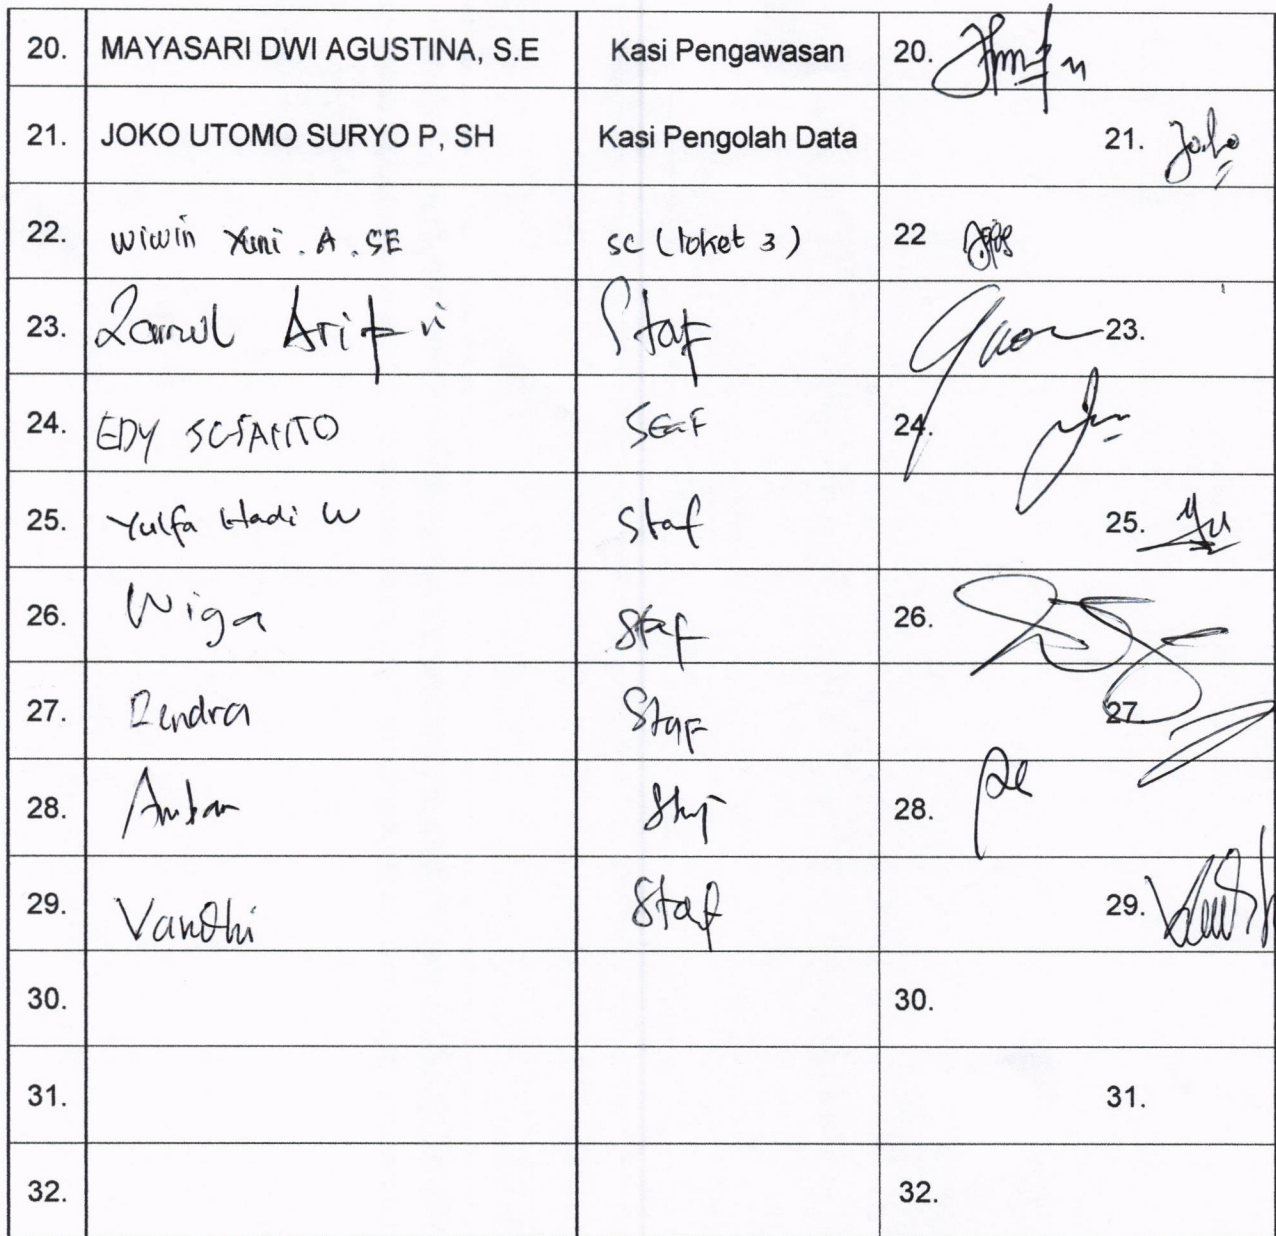 20. MAYASARI DWI AGUSTINA, S.E Kasi Pengawasan 20.
21. JOKO UTOMO SURYO P, SH Kasi Pengolah Data 21. Joko
22. Wiwin Yuni . A . SE SC (loket 3) 22
23. Arifin Staf 23.
24. EDY Staf 24.
25. Yulfa Hadi W Staf 25.
26. Wiga Staf 26.
27. Rendra Staf 27
28. Ambar Staf 28.
29. Vandhi Staf 29.
30. 30.
31. 31.
32. 32.